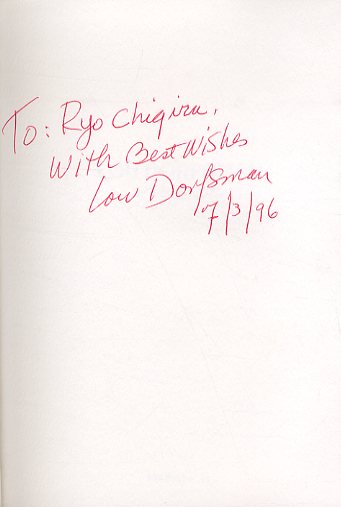 To: Ryo Chiqira,
With Best Wishes
Lou Dorfsman
7/3/96